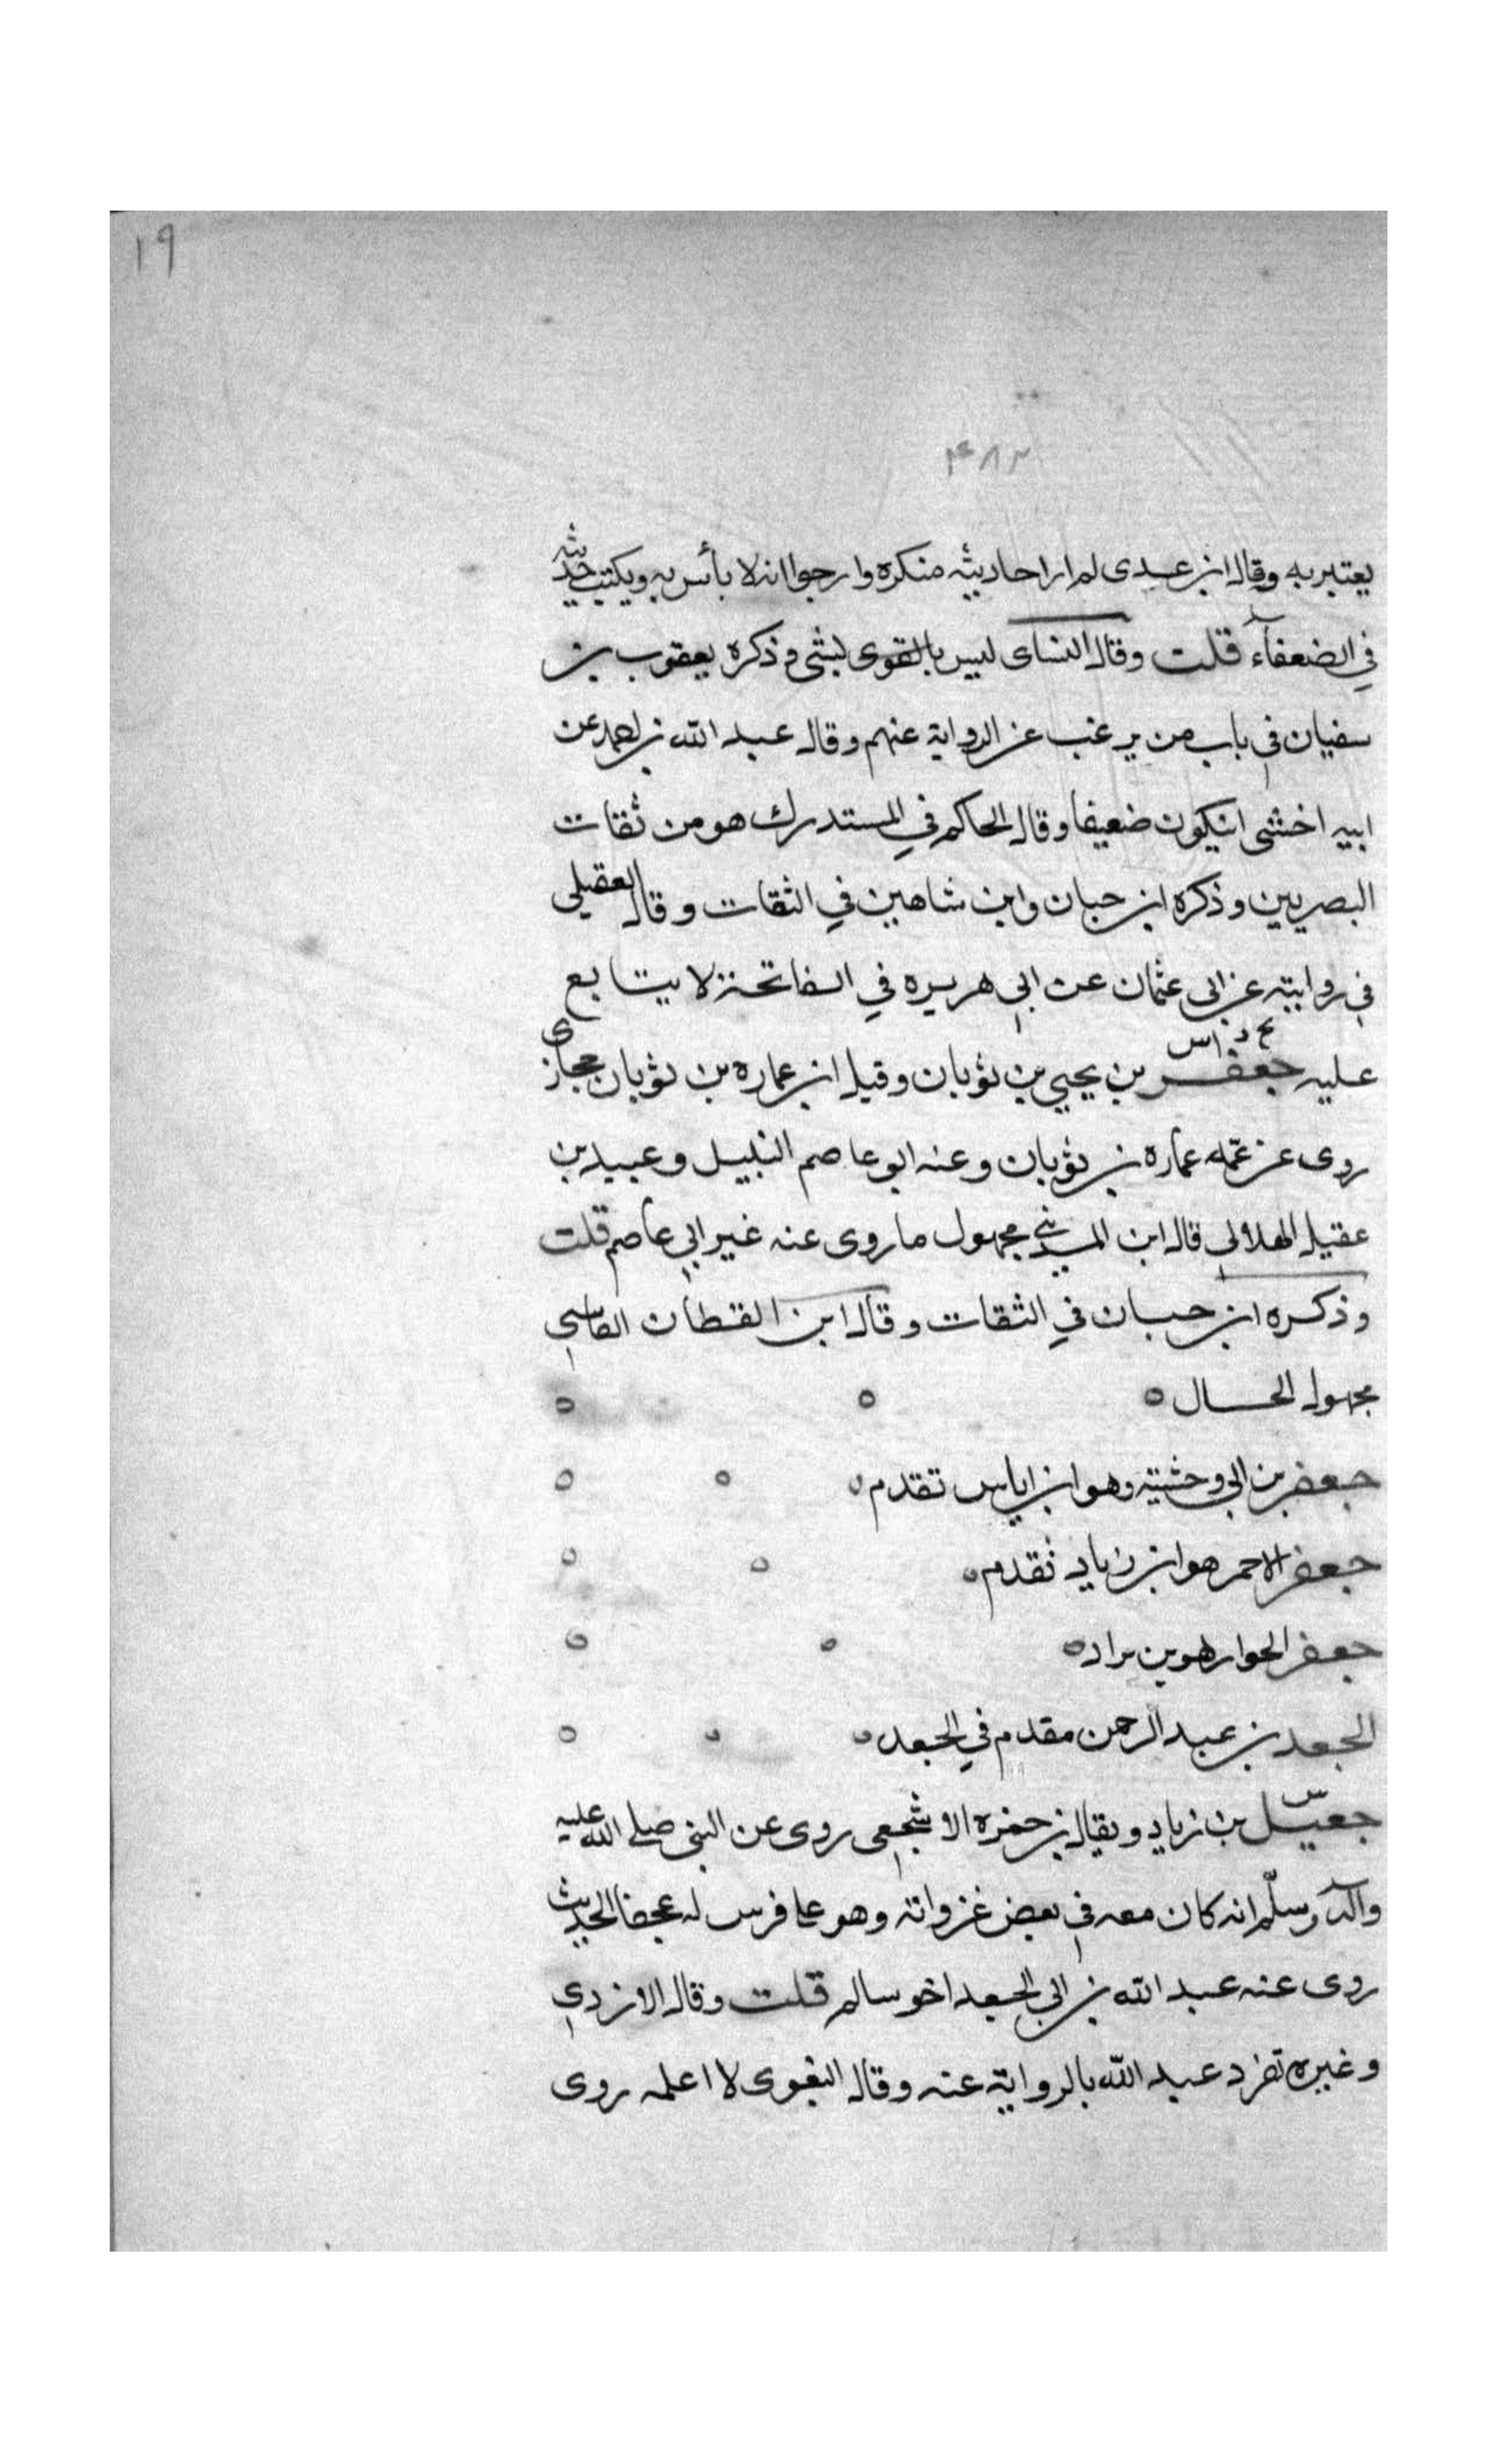 ١٩
٤٨٢
يعتبر به وقال ابن عدى لم ار احاديثه منكره وارجوا انه لا بأس به ويكتب حديثه
في الضعفاء قلت وقال النساى ليس بالقوى لبشى وذكره يعقوب بن
سفيان في باب من يرغب عن الرواية عنهم وقال عبد الله بن احمد عن
ابيه اخشى ان يكون ضعيفا وقال الحاكم في المستدرك هو من ثقات
البصريين وذكره ابن حبان وابن شاهين في الثقات وقال العقيلي
في روايته عن ابى عثمان عن ابي هريره في الفاتحة لا يتابع
عليه جعفر بن يحيى بن ثوبان وقيل ابن عماره بن ثوبان حجازى
روى عن عمه عماره بن ثوبان وعنه ابو عاصم النبيل وعبيد بن
عقيل الهلالي قال ابن المديني مجهول ما روى عنه غير ابي عاصم قلت
وذكره ابن حبان في الثقات وقال ابن القطان الفاسي
مجهول الحال ٥
جعفر بن ابي وحشيته وهو ابن اياس تقدم
جعفر الاحمر هو ابن زياد تقدم
جعفر الحوار هو بن براد
الجعد بن عبد الرحمن مقدم في الجعد
جعيل بن زياد ويقال بن حمزه الاشجعي روى عن النبى صلى الله عليه
وآله وسلّم انه كان معه في بعض غزواته وهو على فرس له عجفا الحديث
روى عنه عبد الله بن ابي الجعد اخو سالم قلت وقال الازدي
وغيره تفرد عبد الله بالرواية عنه وقال البغوى لا اعلمه روى